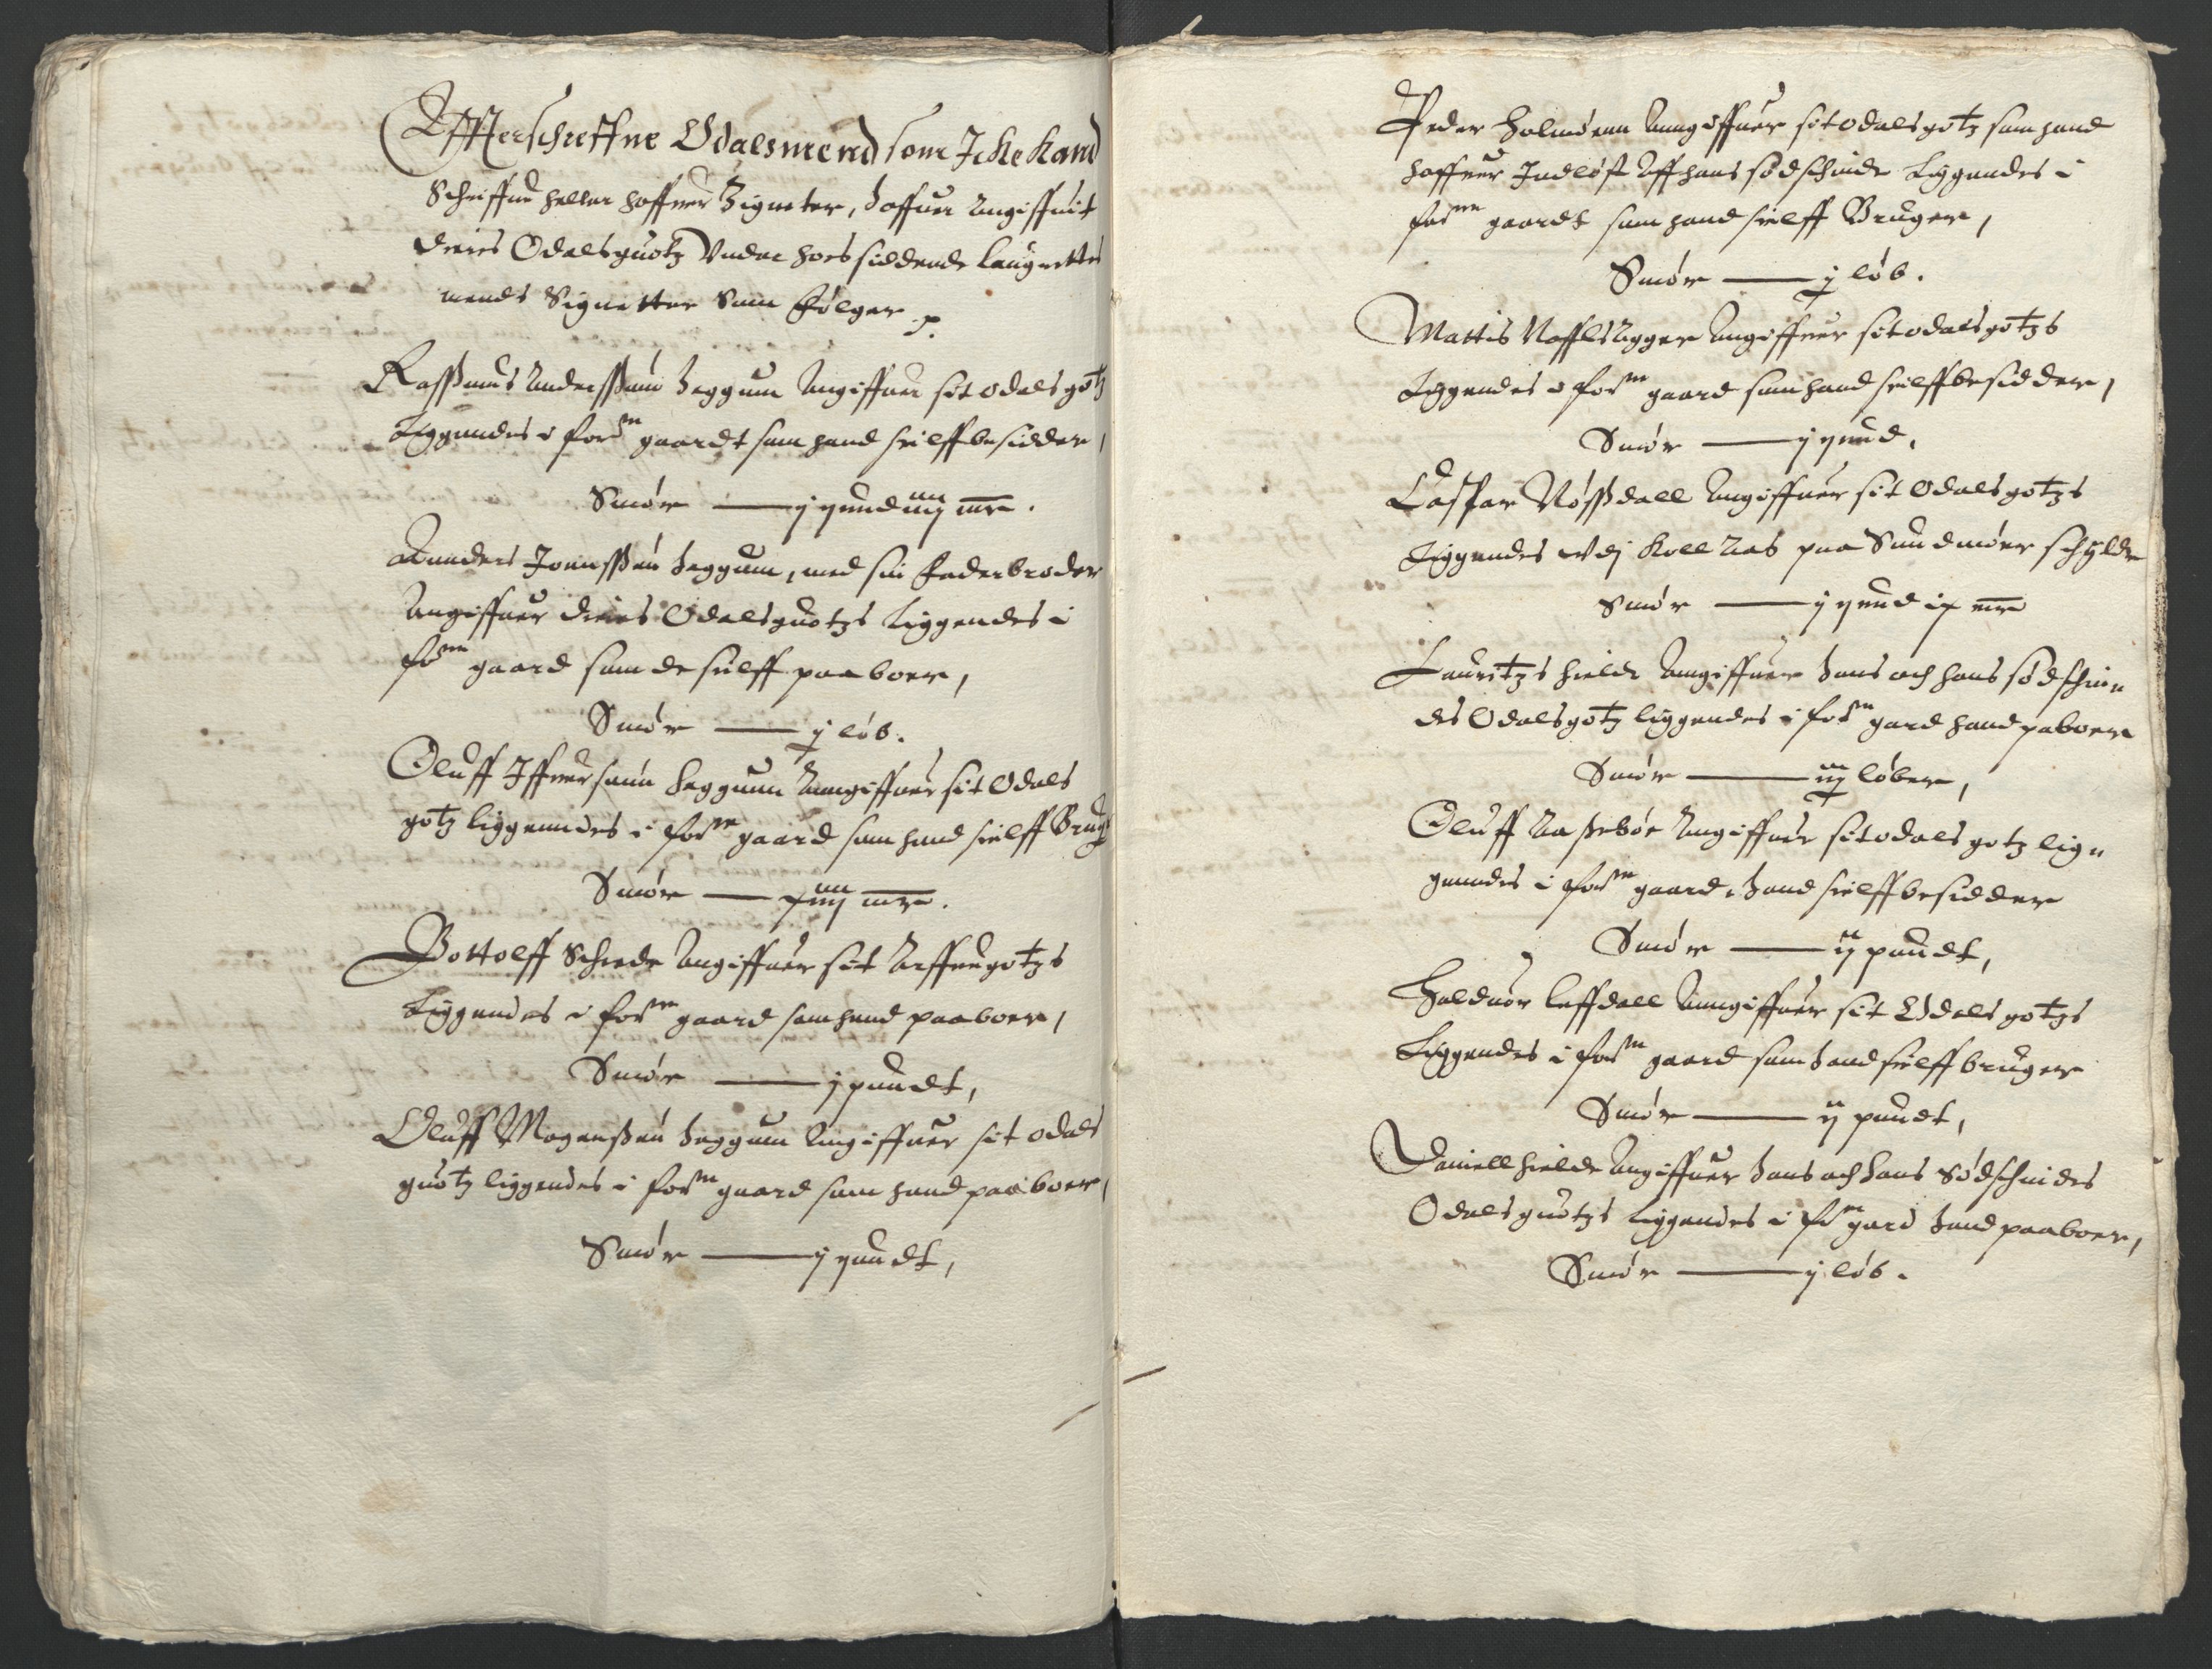 Effterschreffne Odalsmend som Icke Kand
Schriffue heller haffuer Zigneter, haffuer Angiffuit
deris Odalsguotz Vnder hoes siddende Laugrettis
mends Signetter Som følger p.
Rassmus Anderssøun Heggum Angiffuer sit odals gotz
Liggendes i forne gaardt som hand sielff besidder,
Smør — j pund iiij mrk.
Annders Joenssøn Heggum, med sin Faderbroder
Angiffuer deris Odalsguotzs Liggendes i
forne gaard som de sielff paaboer,
Smør — j løb.
Oluff Iffuersøun Heggum Anngiffuer sit Odals
gotz liggenndes i forne gaard som hand sielff Brug
Smør — xiiij mrk.
Bottolff Schrede Angiffuer sit Arffuegotzs
Liggendes i forne gaard som hand paaboer,
Smør — j pundt,
Oluff Mogenssøn Heggum Angiffuer sit odals
guotz liggendes i forne gaard som hand paaboer,
Smør — j pundt,
Peder Holmemn Anngiffuer sit odals gotz som hand
haffuer Indløst Aff hans sødschinde Liggendes i
forne gaardt som hand sielff Bruger,
Smør — j løb.
Mattis Angiffuer sit odals gotzs
Liggendes i forne gaard som hand sielff besidder,
Smør — j pund,
Casper Nøssdall Angiffuer sit Odals gotzs
Liggendes vdj Koll Aas paa Sundmøer schylde
Smør — j pund ix mrk
Lauritzs Hielde Anngiffuer hans och hans sødschin
des Odals gotz liggendes i forne gard hand paboer
Smør — iij løber,
Oluff Aasebøe Angiffuer sit odals gotz lig
genndes i forne gaard, hand sielff besidder
Smør — ij pundt,
Halduor Leffdall Anngiffuer sit Odals gotzs
Liggendes i forne gaard som hand sielff bruger
Smør — ij pundt,
Daniell Hielde Angiffuer hans och hans Sødschindes
Odals guotzs liggendes i forne gard hand paaboer,
Smør — j løb.